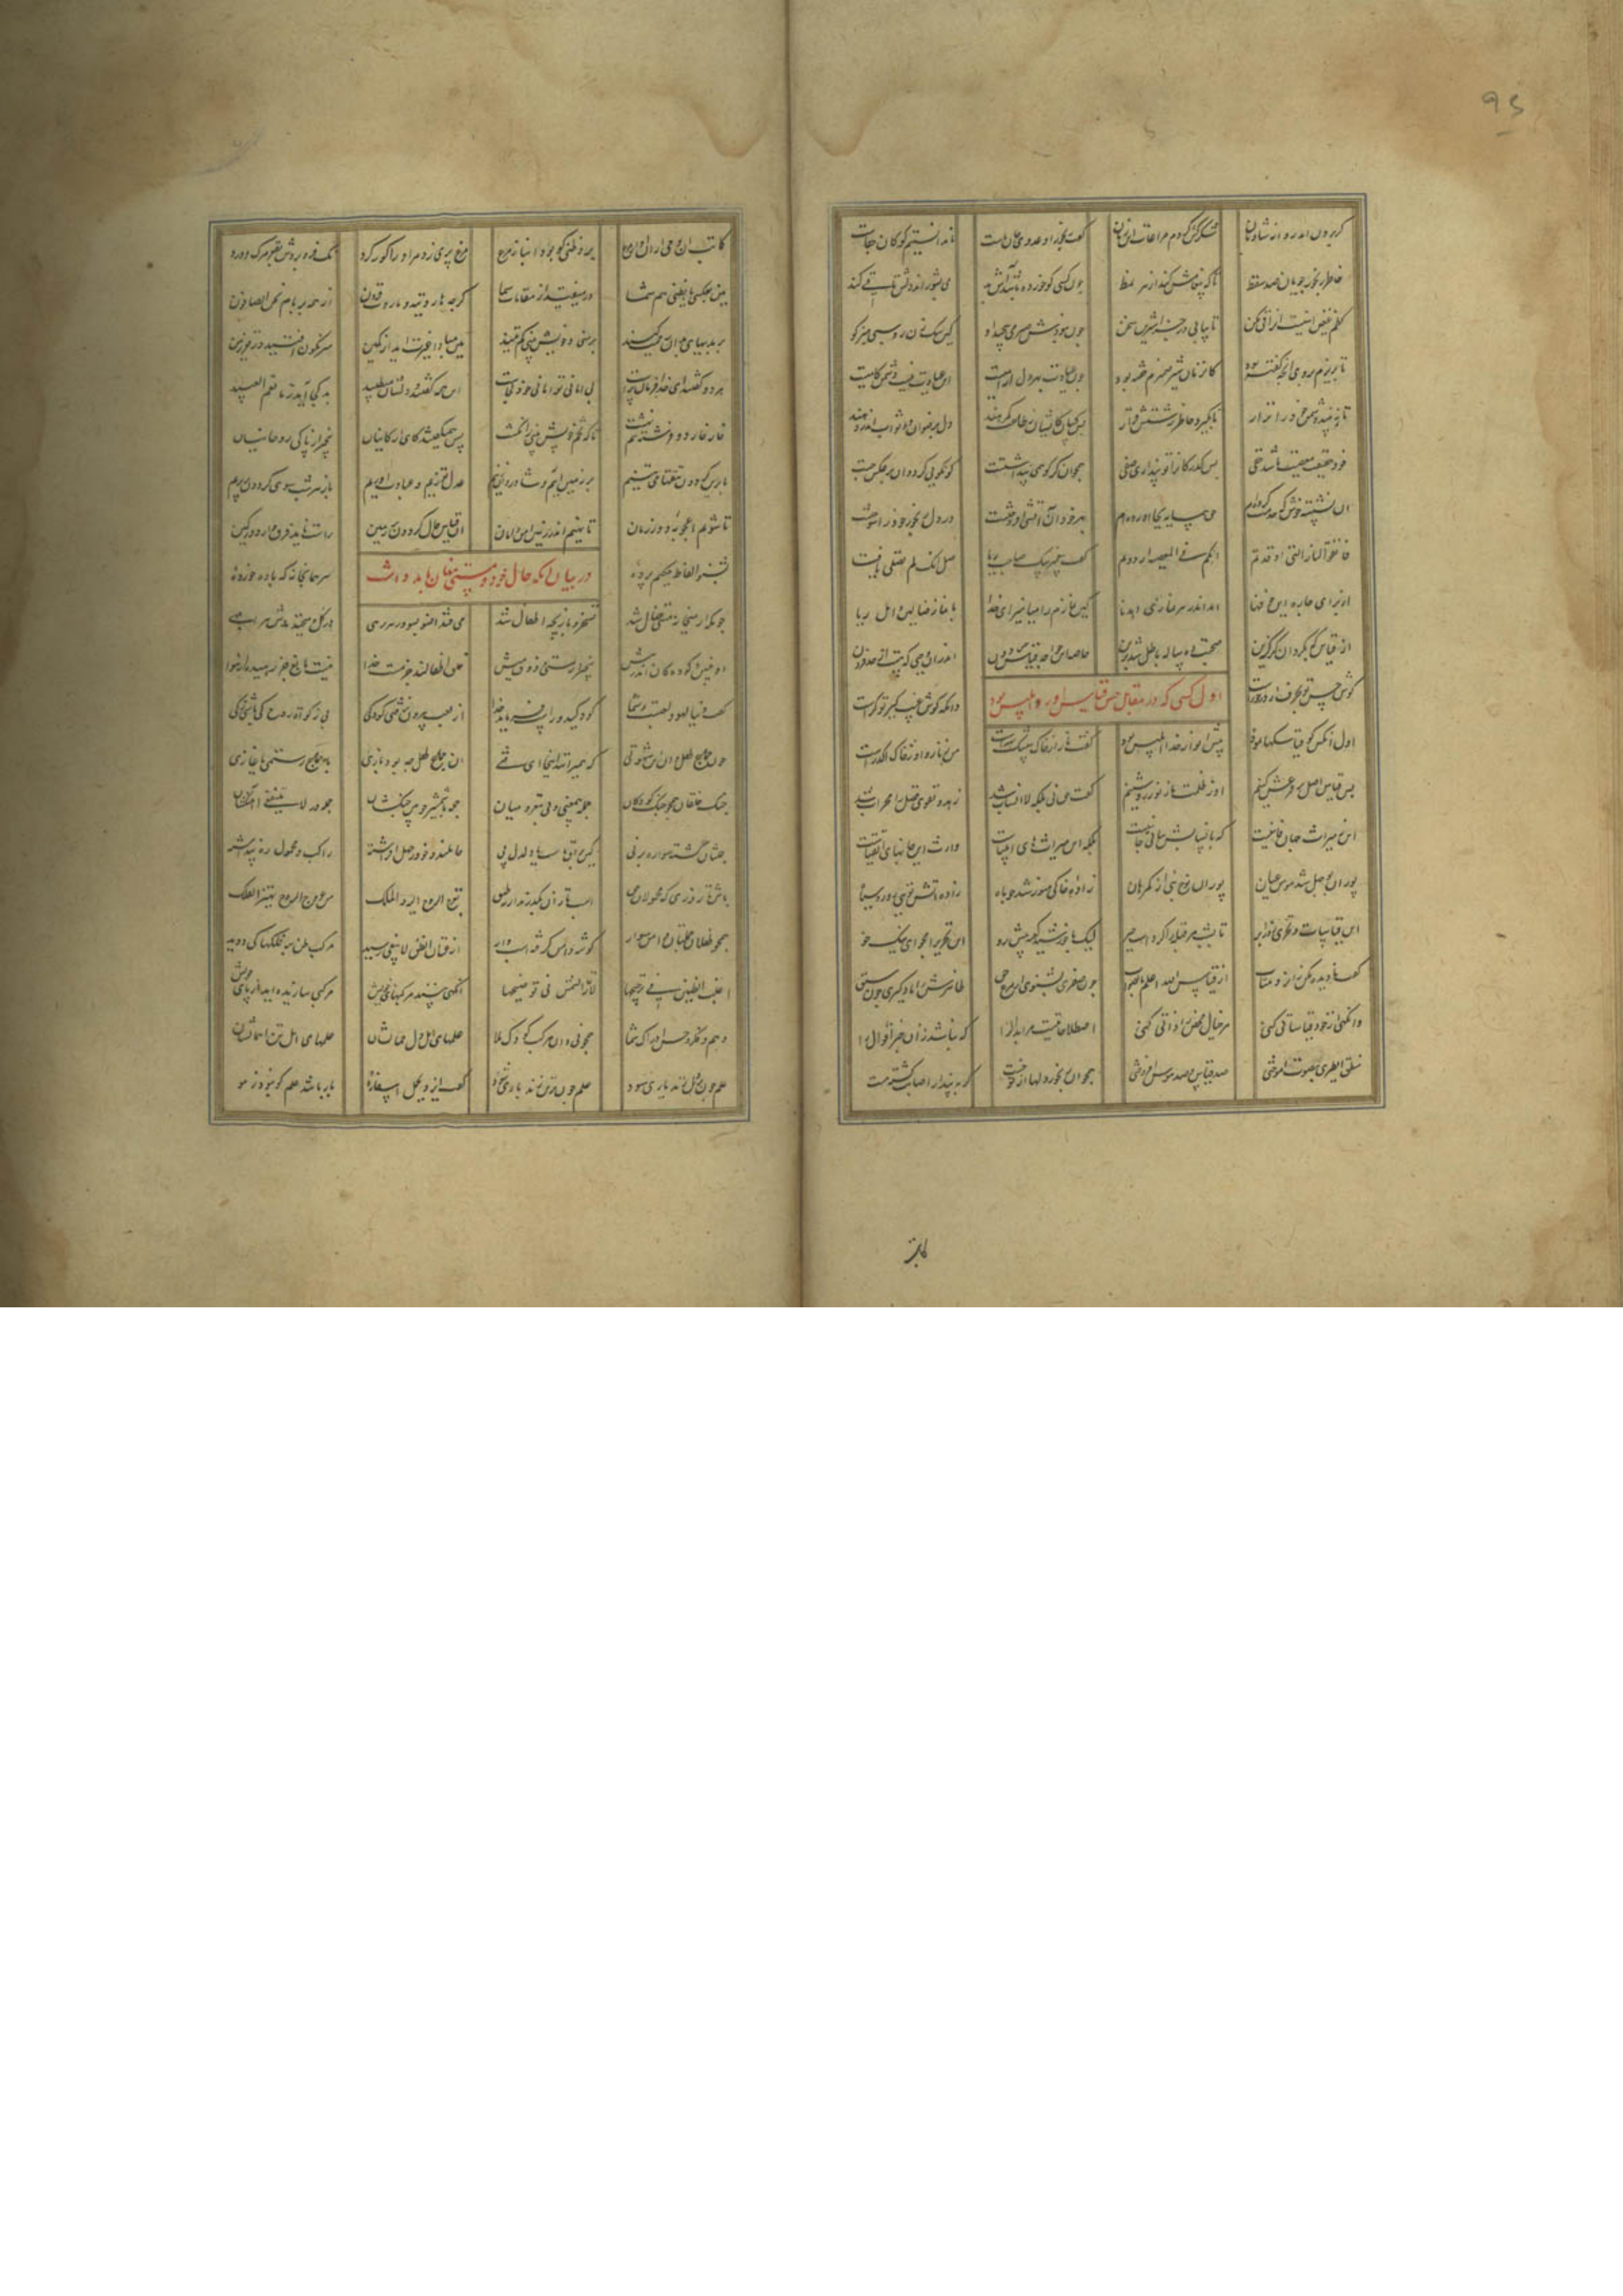 کر برون امد رو از شادمان شکر کش کردم مراعات این زمان گفت رنجور او عدوی جان ماست ما ندانستیم کو کان جفاست
خاطر رنجور جویان صد سقط تا که پیغامش کند از هر نمط چون کسی کو خورده باشد آش بد می بشوراند دلش تا قی کند
کظم غیظ اینست انرا قی مکن تا بیابی در جزا شیرین سخن چون نبودش صبر می پیچید او کین سک زن روسپی حیز کو
تا بریزم بر وی انچه گفته بود کان زمان شیر ضمیرم خفته بود چون عیادت بهر دل ارامیست این عیادت نیست دشمن کامیست
تا ببیند دشمن خود را نزار تا بگیرد خاطر زشتش قرار بس کسان کایشان ز طاعت گمرهند دل برضوان و ثواب ان دهند
خود حقیقت معصیت باشد خفی بس کدر کانرا تو پنداری صفی همچو ان کر کو همی پنداشتست کو نکویی کرد و ان بر عکس جست
او نشسته خوش که خدمت کرده ام حق همسایه بجا اورده ام بهر خود او آتشی افروختست در دل رنجور و خود را سوختست
فاتقوا النار التی اوقدتم انکم فی المعصیه ازددتم گفت پیغمبر بیک صاحب ریا صل انک لم تصل یا فتی
از برای چاره این خوفها امد اندر هر نمازی اهدنا کین نمازم را میامیز ای خدا با نماز ضالین و اهل ریا
از قیاسی که بکرد ان کر گزین صحبت ده ساله باطل شد بدین خاصه ای خواجه قیاس حس دون اندر ان وحی که هست از حد فزون
گوش حس تو بحرف ار در خورست دانکه گوش غیب گیر تو کرست
اول کسی که در مقابل نص قیاس اورد ابلیس بود
اول انکس کین قیاسکها نمود پیش انوار خدا ابلیس بود گفت نار از خاک بی شک بهترست من ز نار و او ز خاک اکدرست
پس قیاس فرع بر اصلش کنیم او ز ظلمت ما ز نور روشنیم گفت حق نی بلکه لا انساب شد زهد و تقوی فضل را محراب شد
این نه میراث جهان فانیست که بانسابش بیابی جانیست بلکه این میراثهای انبیاست وارث این جانهای اتقیاست
پور ان بوجهل شد مومن عیان پور ان نوح نبی از گمرهان زاده خاکی منور شد چو ماه زاده آتش توی رو رو سیاه
این قیاسات و تحری روز ابر یا بشب مر قبله را کردست حبر لیک با خورشید و کعبه پیش رو این قیاس و این تحری را مجو
کعبه نادیده مکن رو زو متاب از قیاس الله اعلم بالصواب چون صفیری بشنوی از مرغ حق ظاهرش را یاد گیری چون سبق
وانگهی از خود قیاساتی کنی مر خیال محض را ذاتی کنی اصطلاحاتیست مر ابدال را که نباشد زان خبر اقوال را
منطق الطیری بصوت آموختی صد قیاس و صد هوس افروختی همچو آن رنجور دلها از تو خست کر به پندار اصابت گشته مست
کاتب
کاتب ان وحی زان اواز مرغ برده ظنی کو بود انباز مرغ مرغ پری زد مر او را کور کرد نک فرو بردش بقعر مرک و درد
هین بعکسی یا بظنی هم شما در میفتید از مقامات سما گرچه هاروتید و ماروت و فزون از همه بر بام نحن الصافون
بر بدیهای بدان رحمت کنید بر منی و خویش بینی کم تنید هین مبادا غیرت اید از کمین سرنگون افتید در قعر زمین
هر دو گفتند ای خدا فرمان تراست بی امان تو امانی خود کجاست این همی گفتند و دلشان می طپید بد کجا اید ز ما نعم العبید
خار خار دو فرشته هم نهشت تا که تخم خویش بینی را نکشت پس همی گفتند کای ارکانیان بی خبر از پاکی روحانیان
ما برین گردون تتقها می تنیم بر زمین اییم و شادروان زنیم عدل توزیم و عبادت اوریم باز هر شب سوی گردون بر پریم
تا شویم اعجوبه دور زمان تا نهیم اندر زمین امن و امان ان قیاس حال گردون بر زمین راست ناید فرق دارد در کمین
در بیان انکه حال خود و مستی پنهان باید داشت
بشنو الفاظ حکیم پرده سر همانجا نه که باده خورده
چونکه از میخانه مستی ضال شد تسخر و بازیچه اطفال شد می فتد این سو و ان سو هر رهی در گل و می خنددش هر ابلهی
او چنین و کودکان اندر پیش بی خبر از مستی و ذوق میش خلق اطفالند جز مست خدا نیست بالغ جز رهیده از هوا
گفت دنیا لعب و لهوست و شما کودکید و راست فرماید خدا از لعب بیرون نرفتی کودکی بی زکات روح کی باشی زکی
چون جماع طفل دان این شهوتی که همی رانند اینجا ای فتی ان جماع طفل چه بود بازیی با جماع رستمی و غازیی
جنگ خلقان همچو جنگ کودکان جمله بی معنی و بی مغز و مهان جمله با شمشیر چوبین جنگشان جمله در لا ینفعی اهنگشان
جمله شان گشته سواره بر نیی کین براق ماست یا دلدل پی حاملند و خود ز جهل افراشته راکب و محمول ره پنداشته
باش تا روزی که محمولان حق اسب تازان بگذرند از نه طبق تعرج الروح الیه و الملک من عروج الروح یهتز الفلک
همچو طفلان جمله تان دامن سوار گوشه دامن گرفته اسب وار از حق ان الظن لا یغنی رسید مرکب ظن بر فلکها کی دوید
اغلب الظنین فی ترجیح ذا لا تمار الشمس فی توضیحها انگهی بینند مرکبهای خویش مرکبی سازیده اید از پای خویش
وهم و فکر و حس و ادراک شما همچو نی دان مرکب کودک هلا علمهای اهل دل حمالشان علمهای اهل تن احمالشان
علم چون بر دل زند یاری شود علم چون بر تن زند باری شود گفت ایزد یحمل اسفاره بار باشد علم کو نبود ز هو